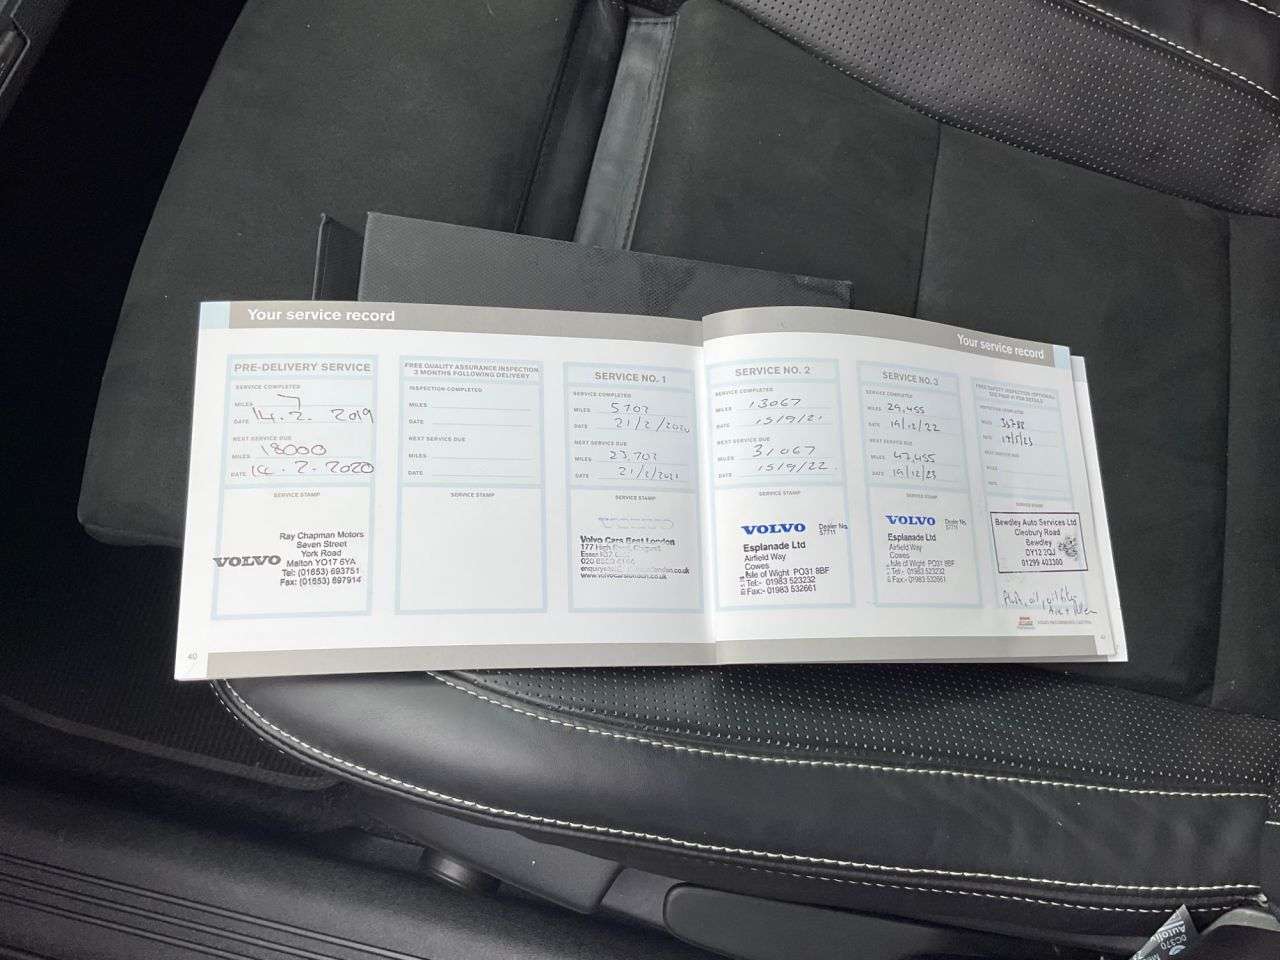 Your service record
PRE-DELIVERY SERVICE
SERVICE COMPLETED
MILES 7
DATE 14.2.2019
NEXT SERVICE DUE
MILES 18000
DATE 14.2.2020
SERVICE STAMP
VOLVO
Ray Chapman Motors
Seven Street
York Road
Malton YO17 6YA
Tel: (01653) 693751
Fax: (01653) 697914
40
FREE QUALITY ASSURANCE INSPECTION
3 MONTHS FOLLOWING DELIVERY
INSPECTION COMPLETED
MILES
DATE
NEXT SERVICE DUE
MILES
DATE
SERVICE STAMP
SERVICE NO. 1
SERVICE COMPLETED
MILES 5702
DATE 21/2/2020
NEXT SERVICE DUE
MILES 23,702
DATE 21/2/2021
SERVICE STAMP
Volvo Cars East London
177 High
Essex
020
www.volvocarslondon.co.uk
Your service record
SERVICE NO. 2
SERVICE COMPLETED
MILES 13067
DATE 15/9/21
NEXT SERVICE DUE
MILES 31067
DATE 15/9/22.
SERVICE STAMP
VOLVO Dealer No.
57711
Esplanade Ltd
Airfield Way
Cowes
Isle of Wight PO31 8BF
Tel:- 01983 523232
Fax:- 01983 532661
SERVICE NO. 3
SERVICE COMPLETED
MILES 29,455
DATE 19/12/22
NEXT SERVICE DUE
MILES 47,455
DATE 19/12/23
SERVICE STAMP
VOLVO Dealer No.
57711
Esplanade Ltd
Airfield Way
Cowes
Isle of Wight PO31 8BF
Tel:- 01983 523232
Fax:- 01983 532661
FREE SAFETY INSPECTION (OPTIONAL)
SEE PAGE FOR DETAILS
INSPECTION COMPLETED
MILES
DATE
NEXT SERVICE DUE
MILES
DATE
SERVICE STAMP
Bewdley Auto Services Ltd
Cleobury Road
Bewdley
DY12 2QJ
01299 403300
oil, oil
41
Autoliv